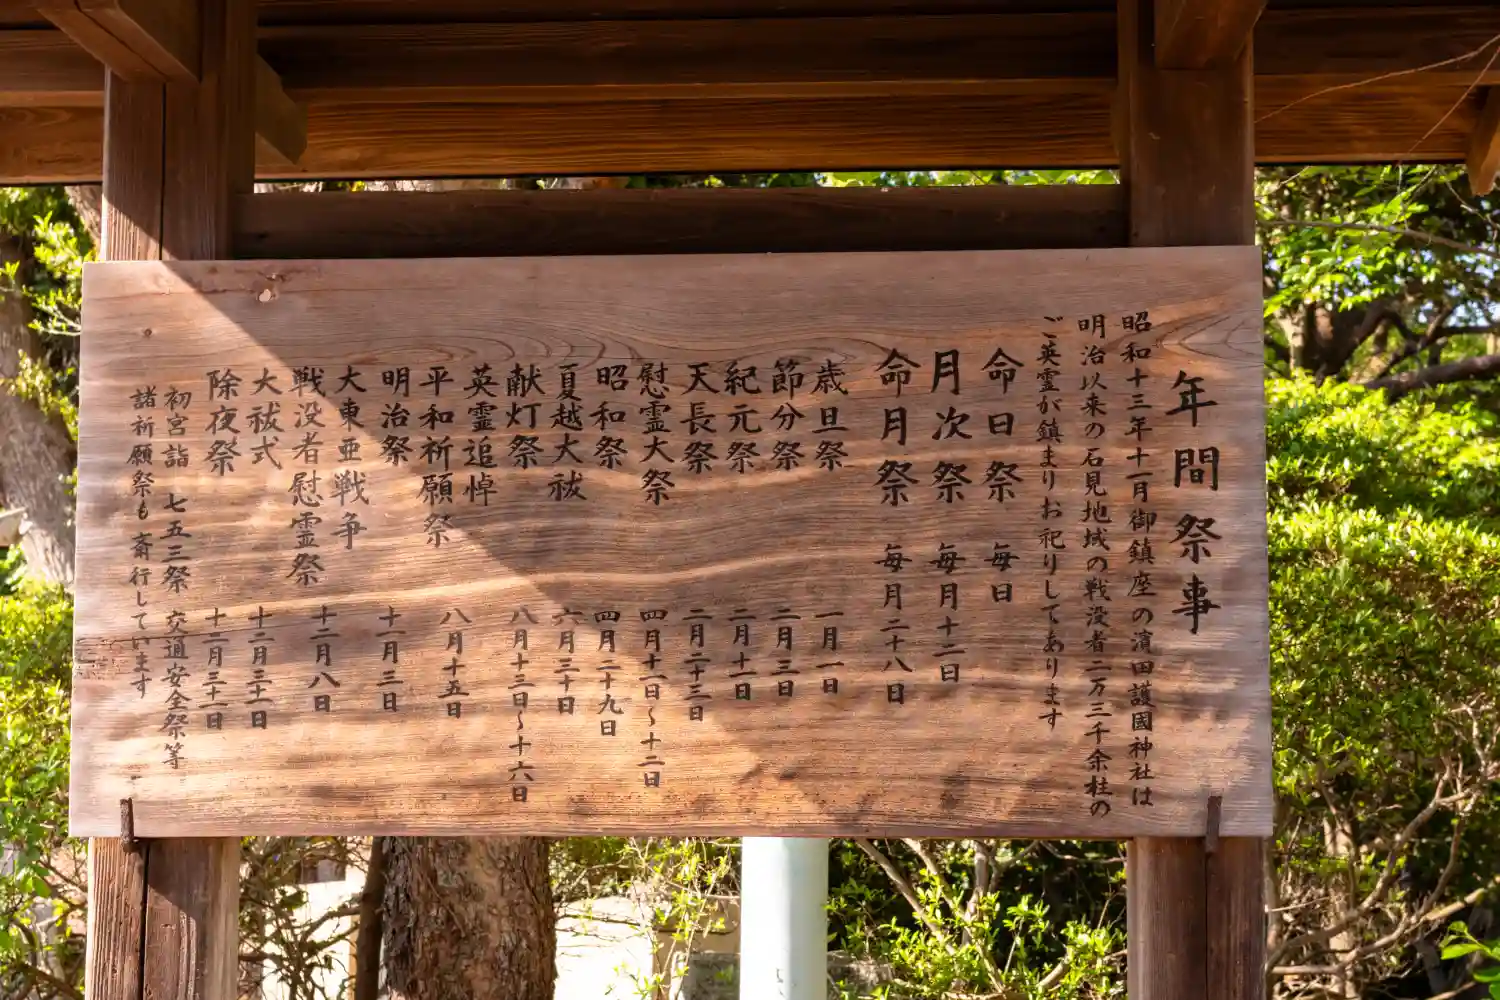 年間祭事
昭和十三年十一月御鎮座の濱田護國神社は
明治以来の石見地域の戦没者二万三千余柱の
ご英霊が鎮まりお祀りしてあります
命日祭 毎日
月次祭 毎月十二日
命月祭 毎月二十八日
歳旦祭 一月一日
節分祭 二月三日
紀元祭 二月十一日
天長祭 二月二十三日
慰霊大祭 四月十一日~十二日
昭和祭 四月二十九日
夏越大祓 六月三十日
献灯祭 八月十三日~十六日
英霊追悼
平和祈願祭 八月十五日
明治祭 十一月三日
大東亜戦争
戦没者慰霊祭 十二月八日
大祓式 十二月三十一日
除夜祭 十二月三十一日
初宮詣 七五三祭 交通安全祭等
諸祈願祭も斎行しています